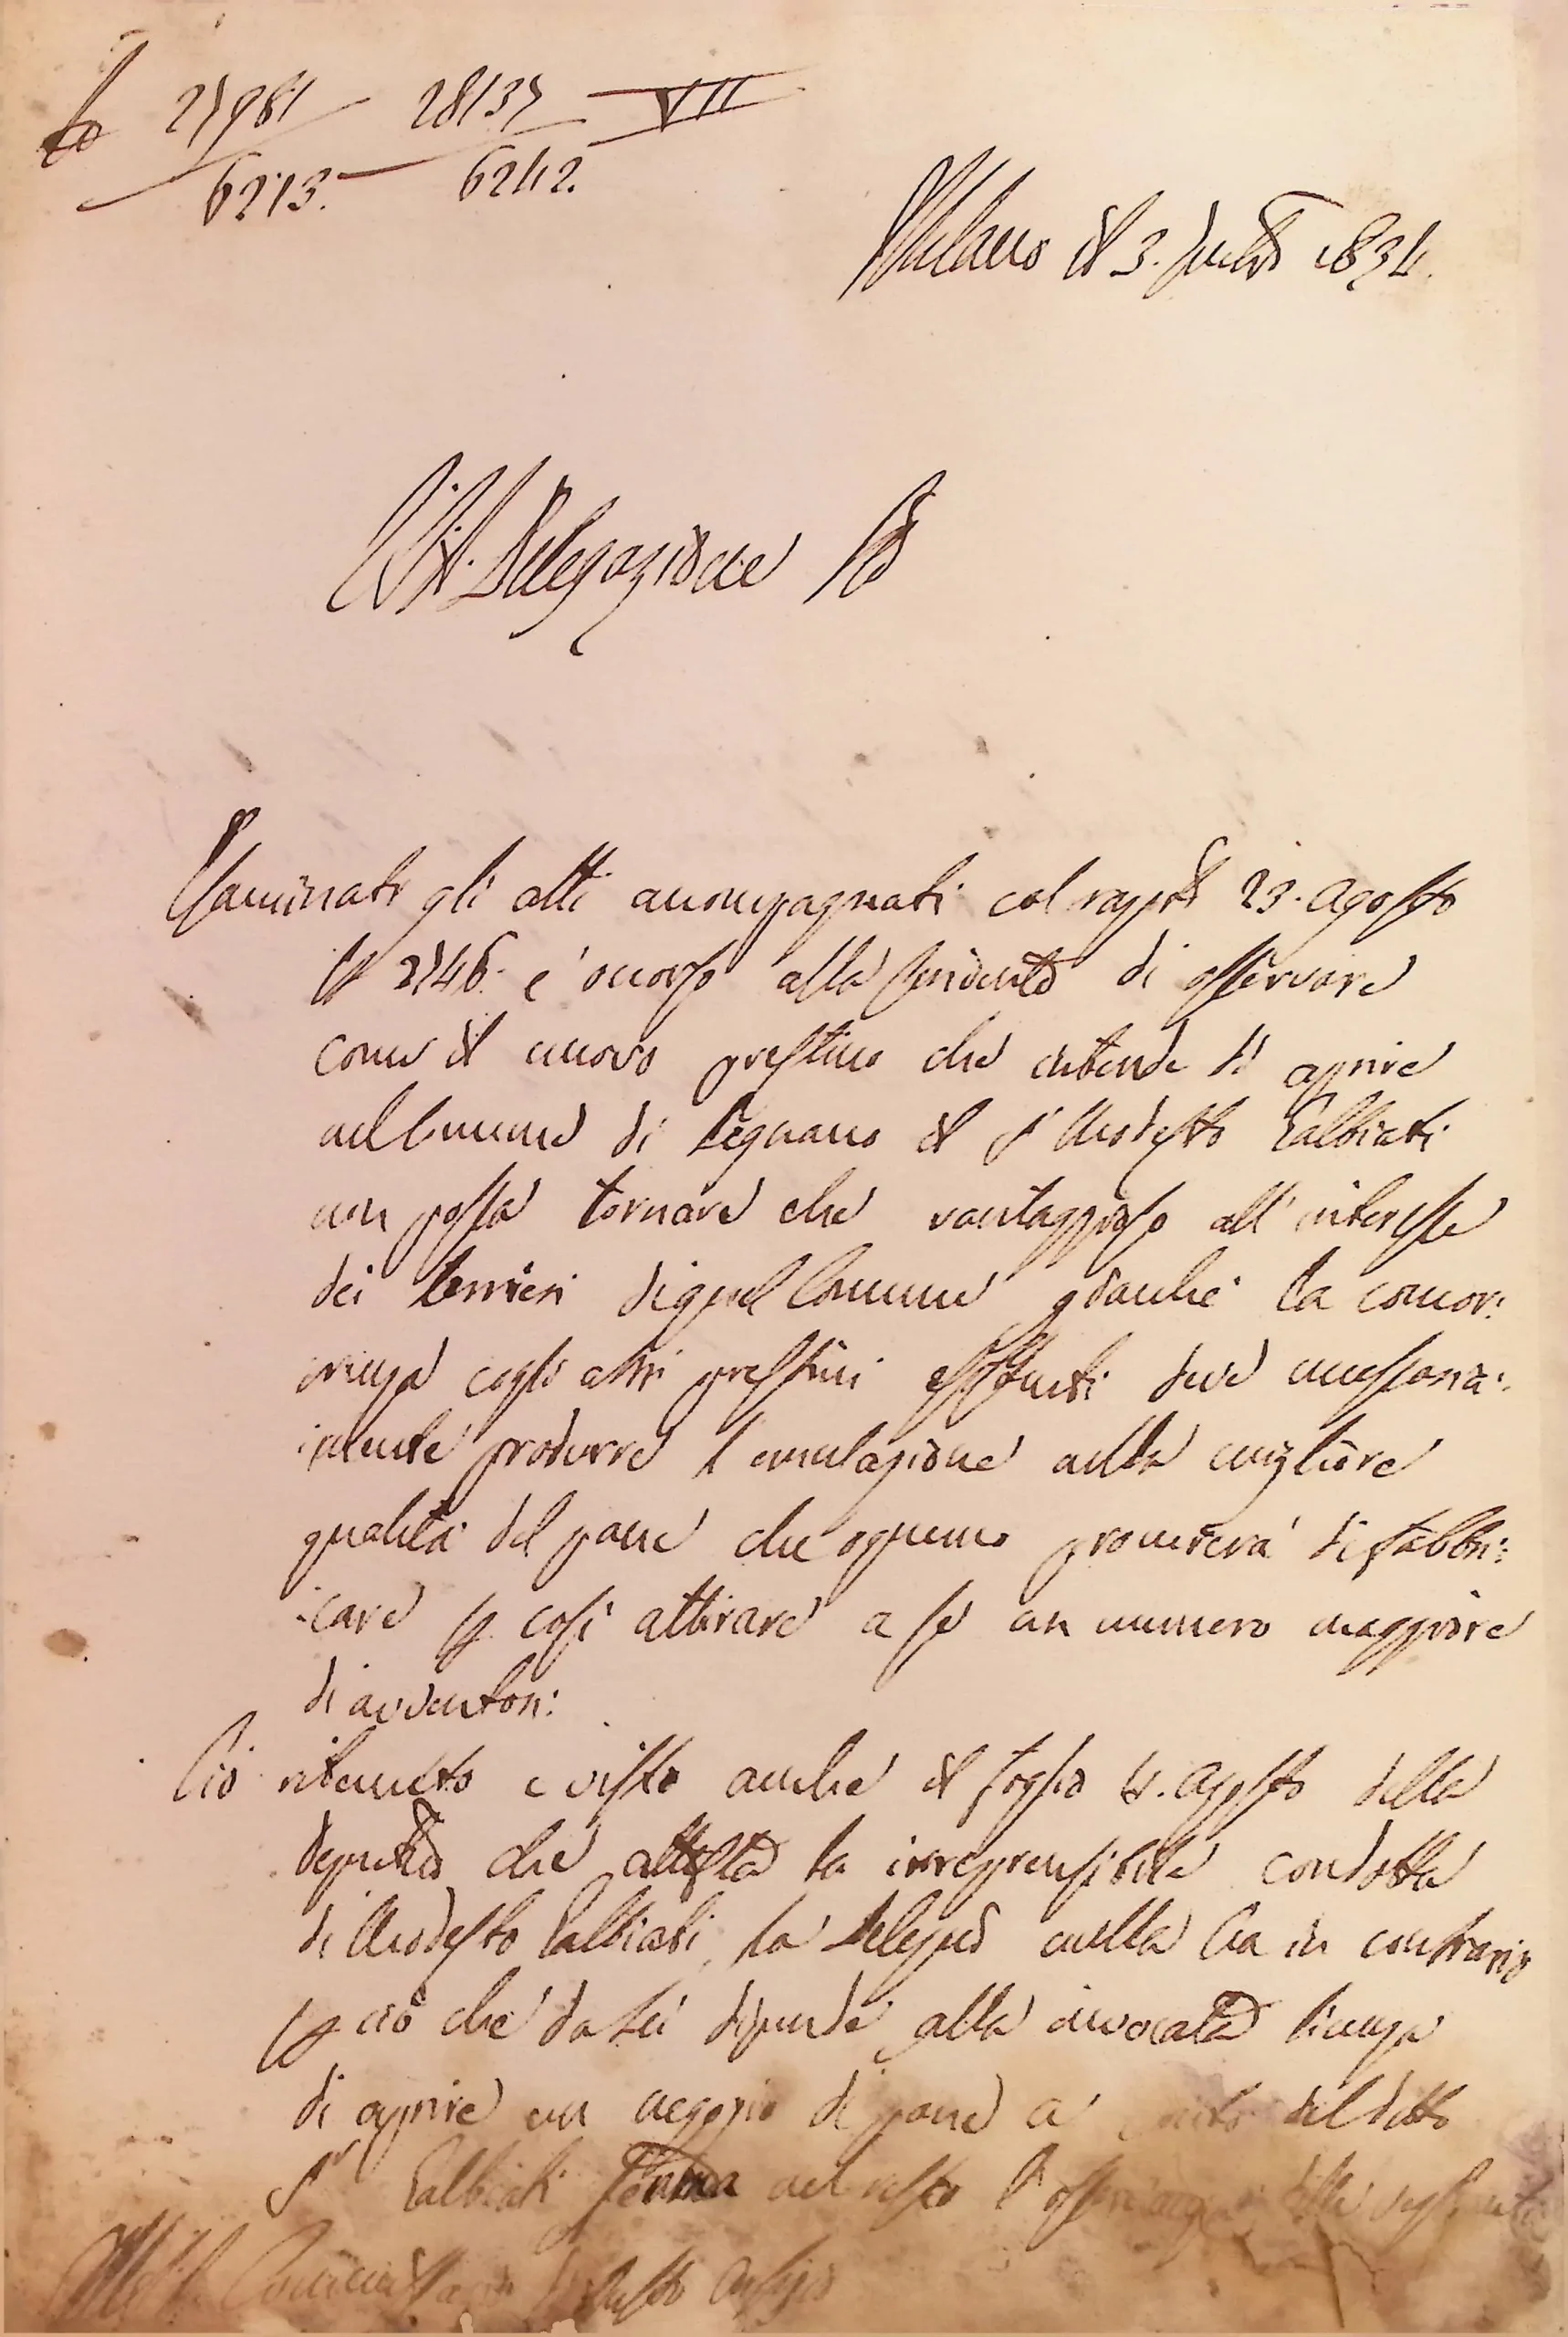 N° 27981 28137 VII
6213. 6242.
Milano il 3. 1834.
L'I. R. Delegazione Ple
Esaminati gli atti accompagnati col rapp.to 23. Agosto
N 2746. è occorso alla scrivente di osservare
come il nuovo prestino che intende di aprire
nel Comune di Legnano il Sr Modesto Galbiati
non possa tornare che vantaggioso all'interesse
dei terrieri di quel Comune giacché la concor:
renza cogli altri prestini esistenti deve necessaria:
:mente produrre l'emulazione nella migliore
qualità del pane che ognuno procurerà di fabbri:
:care p. così attirare a se un numero maggiore
di avventori:
Ciò ritenuto e visto anche il foglio 4. Agosto della
Deput.e che attesta la irreprensibile condotta
di Modesto Galbiati, la Deleg.ne nulla ha in contrario
p. ciò che da lei dipende alla invocata licenza
di aprire un negozio di pane a conto del detto
Sr Galbiati ferma nel resto l'osservanza delle
Commissario Busto Arsizio